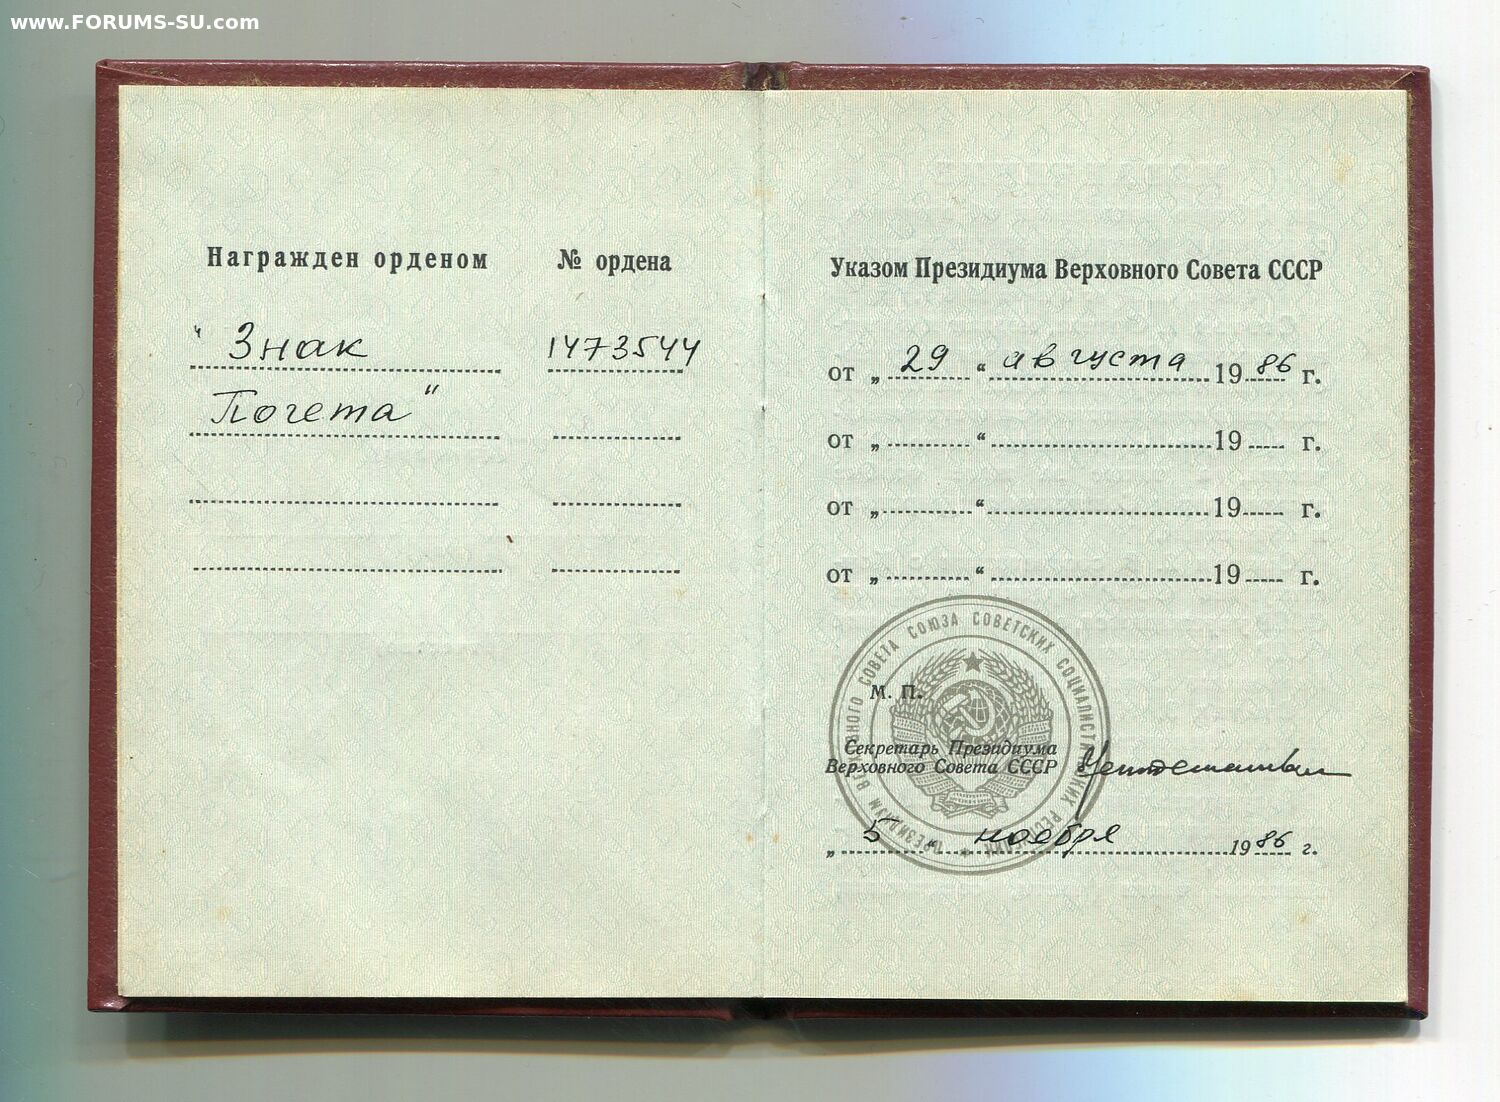 www.FORUMS-SU.com
Награжден орденом
№ ордена
"Знак
1473544
Почета"
Указом Президиума Верховного Совета СССР
от „ 29 “ августа 1986 г.
от „ “ 19 г.
от „ “ 19 г.
от „ “ 19 г.
ПРЕЗИДИУМ ВЕРХОВНОГО СОВЕТА СОЮЗА СОВЕТСКИХ СОЦИАЛИСТИЧЕСКИХ РЕСПУБЛИК
М. П.
Секретарь Президиума
Верховного Совета СССР
„ 5 “ ноября 1986 г.